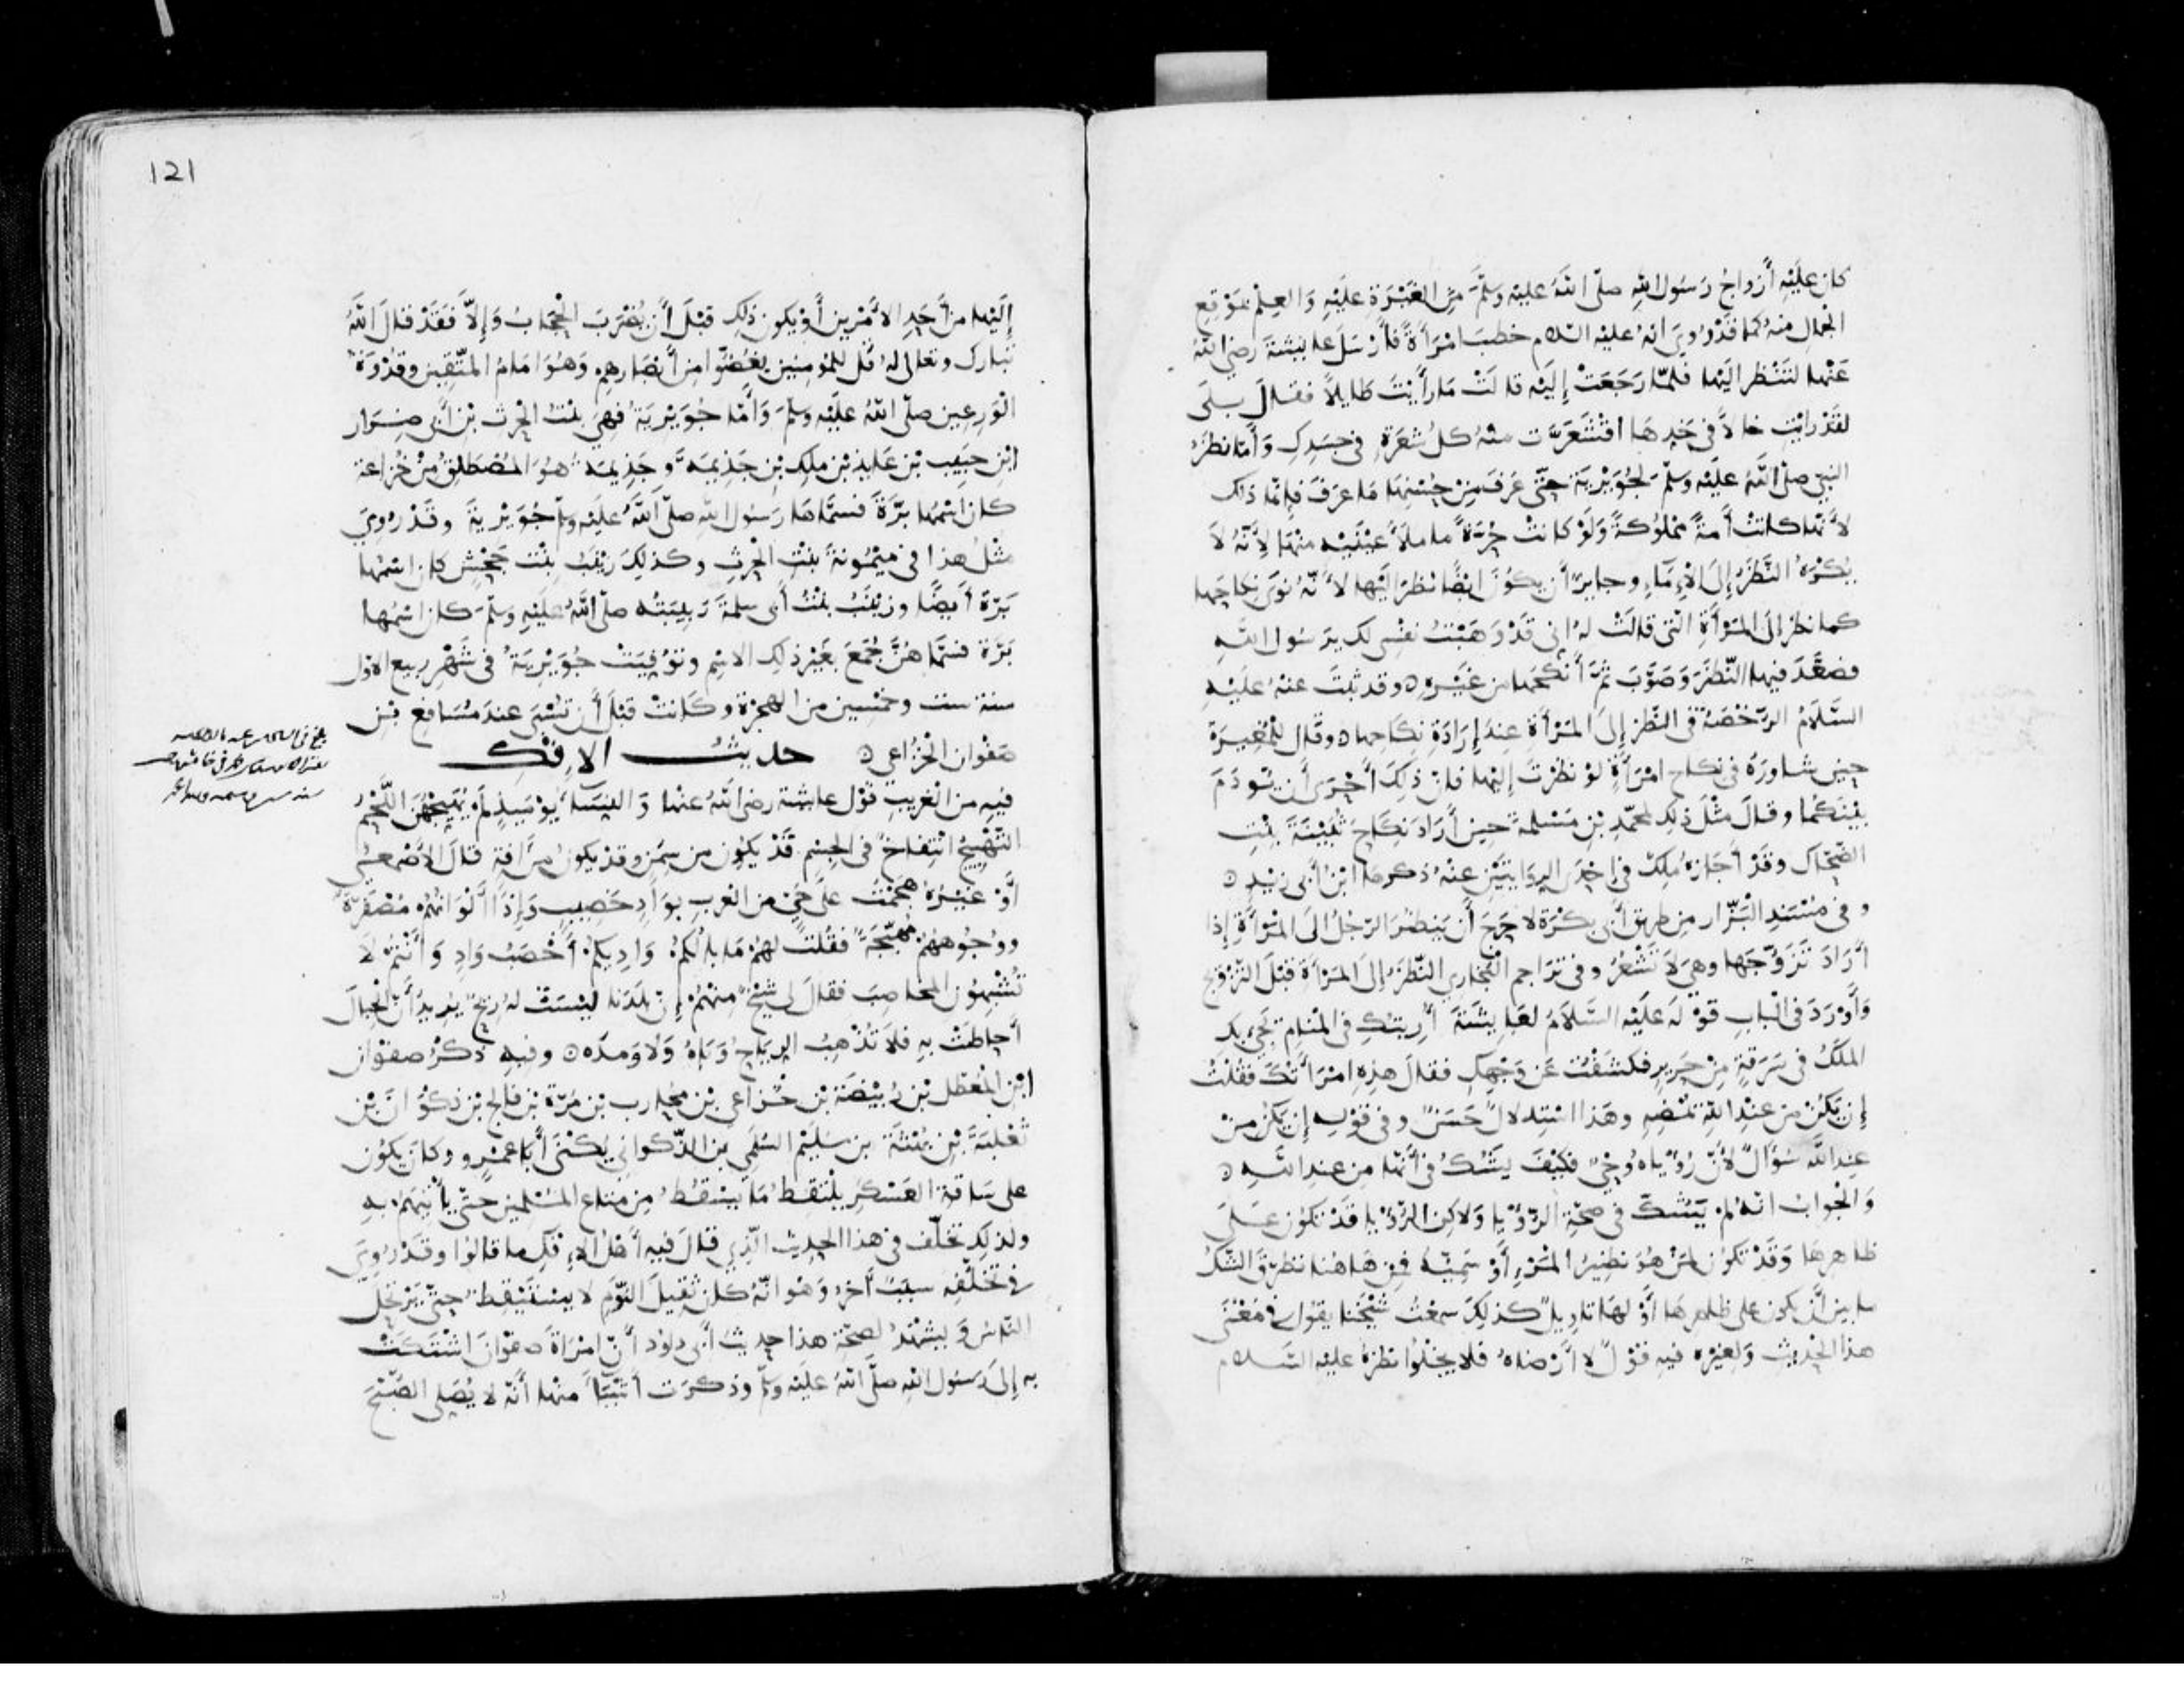 كان عليه أزواج رسول الله صلى الله عليه وسلم من الغيرة عليه والعلم بموقع
الجمال منه كما قد روي انه عليه السلام خطب امرأة فأرسل عايشة رضي الله
عنها لتنظر اليها فلما رجعت إليه قالت ما رأيت طايلا فقال بلى
لقد رايت خالا في خدها اقشعرت منه كل شعرة في جسدك وأما نظره
النبي صلى الله عليه وسلم لجويرية حتى عرف من حسنها ما عرف فإنما ذلك
لأنها كانت أمة مملوكة ولو كانت حرة ما ملأ عينيه منها لأنه لا
يكره النظر إلى الإماء وجايز أن يكون ايضا نظر اليها لأنه نوى نكاحها
كما نظر الى المرأة التي قالت له إني قد وهبت نفسي لك يرسول الله
فصعد فيها النظر وصوب ثم أنكحها من غيره وقد ثبت عنه عليه
السلام الرخصة في النظر إلى المرأة عند إرادة نكاحها وقال للمغيرة
حين شاوره في نكاح امرأة لو نظرت إليها فان ذلك أحرى أن يودم
بينكما وقال مثل ذلك لمحمد بن مسلمة حين أراد نكاح ثبيتة بنت
الضحاك وقد أجازه ملك في إحدى الروايتين عنه ذكرها ابن أبي زيد
وفي مسند البزار من طريق أبي بكرة لا حرج أن ينظر الرجل الى المرأة إذا
أراد تزوجها وهي لا تشعر وفي تراجم البخاري النظر إلى المرأة قبل التزويج
وأورد في الباب قوله عليه السلام لعايشة أريتك في المنام يجيء بك
الملك في سرقة من حرير فكشفت عن وجهك فقال هذه امرأتك فقلت
إن يكن من عند الله يمضه وهذا استدلال حسن وفي قوله إن يكن من
عند الله سؤال لأن رؤياه وحي فكيف يشك في أنها من عند الله
والجواب انه لم يشك في صحة الرؤيا ولاكن الرؤيا قد تكون على
ظاهرها وقد تكون لمن هو نظير المرء أو سميه فمن هاهنا تطرق الشك
ما بين أن يكون على ظاهرها أو لها تاويل كذلك سمعت شيخنا يقول في معنى
هذا الحديث ولغيره فيه قول لا أرضاه فلا يخلوا نظره عليه السلام
121
إليها من أحد الأمرين أو يكون ذلك قبل أن يضرب الحجاب وإلا فقد قال الله
تبارك وتعالى له قل للمومنين يغضوا من أبصارهم وهو امام المتقين وقدوة
الورعين صلى الله عليه وسلم وأما جويرية فهي بنت الحرث بن أبي ضرار
ابن حبيب بن عايذ بن ملك بن جذيمة وجذيمة هو المصطلق من خزاعة
كان اسمها برة فسماها رسول الله صلى الله عليه وسلم جويرية وقد روي
مثل هذا في ميمونة بنت الحرث وكذلك زينب بنت جحش كان اسمها
برة أيضا وزينب بنت أبي سلمة ربيبته صلى الله عليه وسلم كان اسمها
برة فسماهن جمع بغير ذلك الاسم وتوفيت جويرية في شهر ربيع الاول
سنة ست وخمسين من الهجرة وكانت قبل أن تسبى عند مسافع بن
صفوان الخزاعي حديث الإفك
فيه من الغريب قول عايشة رضي الله عنها والنساء يوميذ لم يهيجهن اللحم
التهييج انتفاخ في الجسم قد يكون من سمن وقد يكون من آفة قال الأصمعي
أو غيره هجمت على حي من العرب بواد خصيب وإذا ألوانهم مصفرة
ووجوههم مهيجة فقلت لهم ما بالكم واديكم أخصب واد وأنتم لا
تشبهون المخاصب فقال لي شيخ منهم إن بلدنا ليست له ريح يريد أن الجبال
أحاطت به فلا تذهب الرياح وباه ولا ومده وفيه ذكر صفوان
ابن المعطل بن ربيضة بن خزاعي بن محارب بن مرة بن فالج بن ذكوان بن
ثعلبة بن بهثة بن سليم السلمي بن الذكواني يكنى أبا عمرو وكان يكون
على ساقة العسكر يلتقط ما يسقط من متاع المسلمين حتى يأتيهم به
ولذلك تخلف في هذا الحديث الذي قال فيه أهل الإفك ما قالوا وقد روي
في تخلفه سبب آخر وهو انه كان ثقيل النوم لا يستيقظ حتى يرتحل
الناس ويشهد لصحة هذا حديث أبي داود أن امرأة صفوان اشتكت
به إلى رسول الله صلى الله عليه وسلم وذكرت أشياء منها أنه لا يصلي الصبح